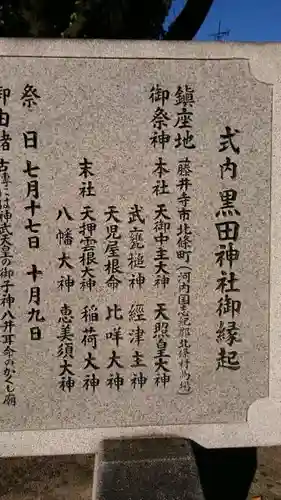 式内黒田神社御縁起
鎮座地 藤井寺市北條町(河内国志紀郡北條村馬場)
御祭神 本社 天御中主大神 天照皇大神
武甕槌神 經津主神
天児屋根命 比咩大神
末社 天押雲根大神 稲荷大神
八幡大神 恵美須大神
祭 日 七月十七日 十月九日
御由緒 古書には神武天皇の御子神八井耳命のかくし廟